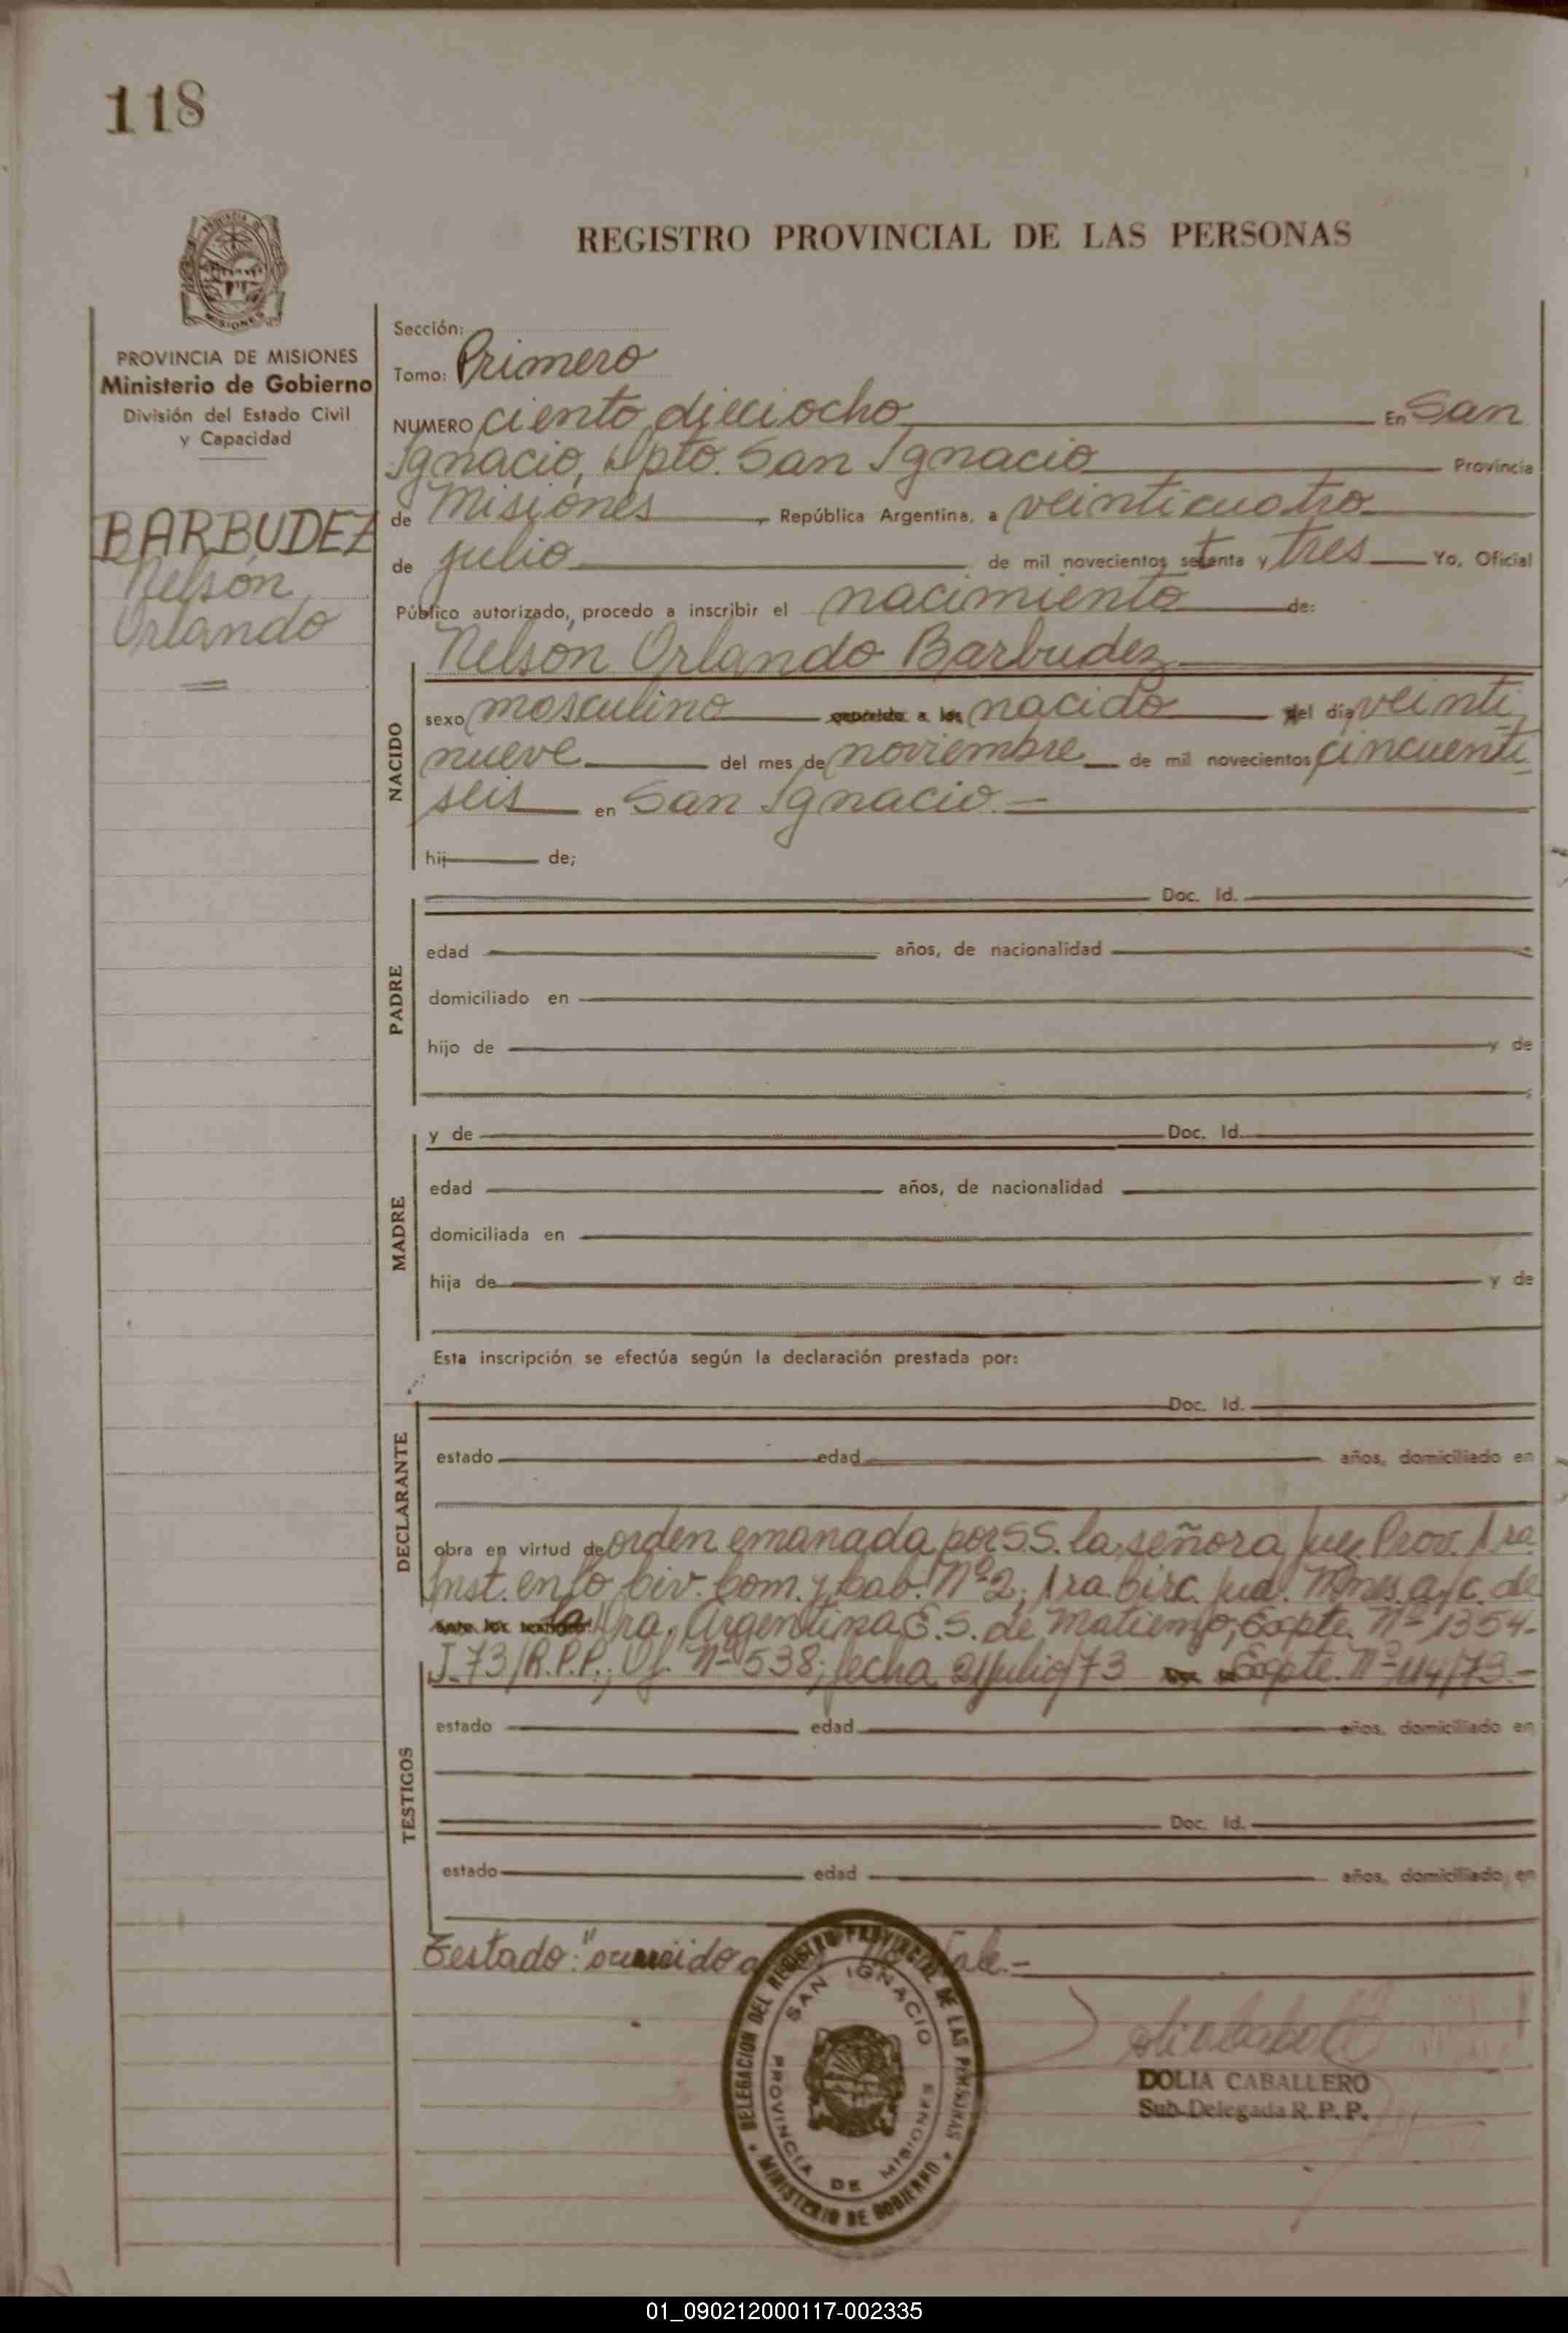 118
REGISTRO PROVINCIAL DE LAS PERSONAS
PROVINCIA DE MISIONES
Ministerio de Gobierno
División del Estado Civil
y Capacidad
BARBUDEZ
Nelson
Orlando
Sección:
Tomo: Primero
NUMERO ciento dieciocho En San
Ignacio, Dpto. San Ignacio Provincia
de Misiones, República Argentina, a veinticuatro
de julio de mil novecientos setenta y tres Yo, Oficial
Público autorizado, procedo a inscribir el nacimiento de:
NACIDO
Nelson Orlando Barbudez
sexo masculino nacido del día veinti
nueve del mes de noviembre de mil novecientos cincuenti
seis en San Ignacio.-
hij de;
PADRE
Doc. Id.
edad años, de nacionalidad
domiciliado en
hijo de y de
MADRE
y de Doc. Id.
edad años, de nacionalidad
domiciliada en
hija de y de
Esta inscripción se efectúa según la declaración prestada por:
DECLARANTE
Doc. Id.
estado edad años, domiciliado en
obra en virtud de orden emanada por S.S. la señora Juez Prov. 1ra
Inst. en lo Civ. Com. y Lab. Nº 2, 1ra Circ. Jud. Mnes. a/c. de
la Dra. Argentina E. S. de Matienzo, Expte. Nº 1354-
J-73/R.P.P., Of. Nº 538; fecha 21/julio/73 Expte. Nº 114/73.-
TESTIGOS
estado edad años, domiciliado en
Doc. Id.
estado edad años, domiciliado en
Testado: "ocurrido a
DELEGACION DEL REGISTRO PROVINCIAL DE LAS PERSONAS
SAN IGNACIO
PROVINCIA DE MISIONES
MINISTERIO DE GOBIERNO
DOLIA CABALLERO
Sub-Delegada R. P. P.
01_090212000117-002335